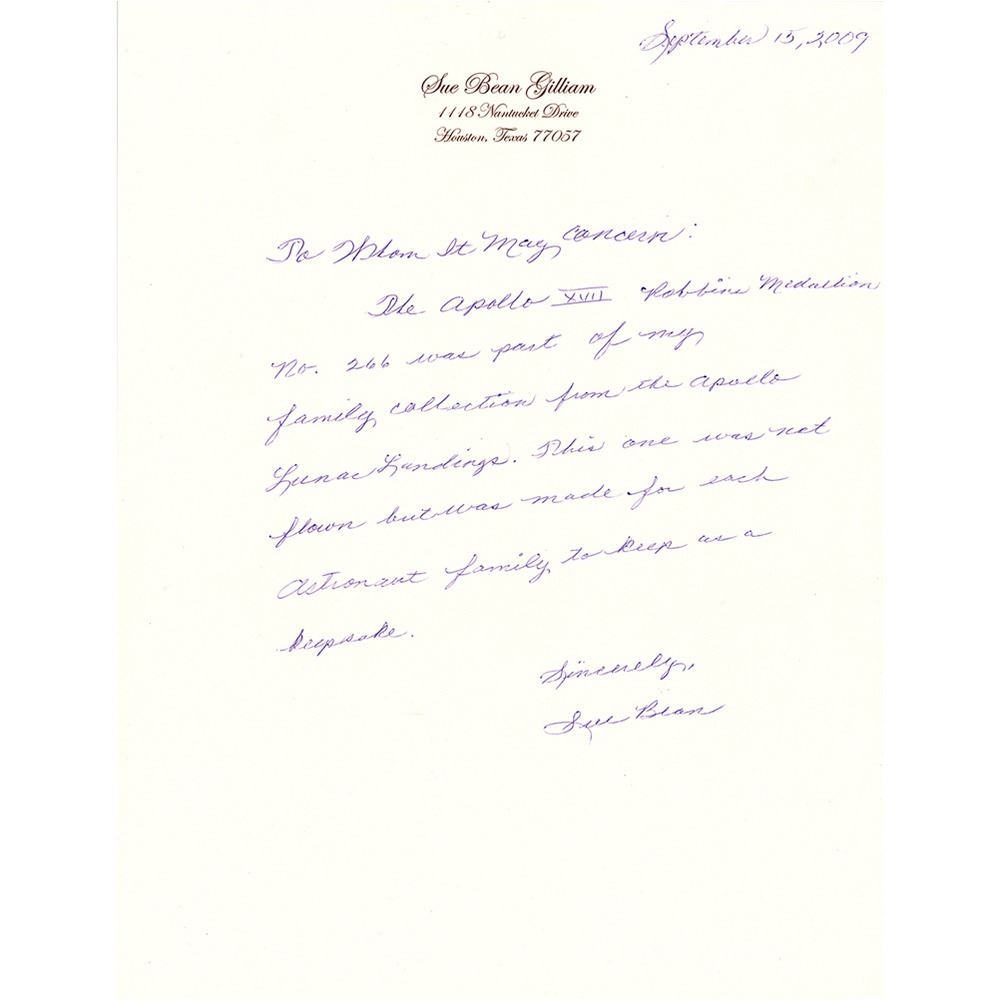 September 15, 2009
Sue Bean Gilliam
1118 Nantucket Drive
Houston, Texas 77057
To Whom It May Concern:
The Apollo XVII Robbins Medallion
No. 266 was part of my
family collection from the Apollo
Lunar Landings. This one was not
flown but was made for each
Astronaut family to keep as a
keepsake.
Sincerely,
Sue Bean